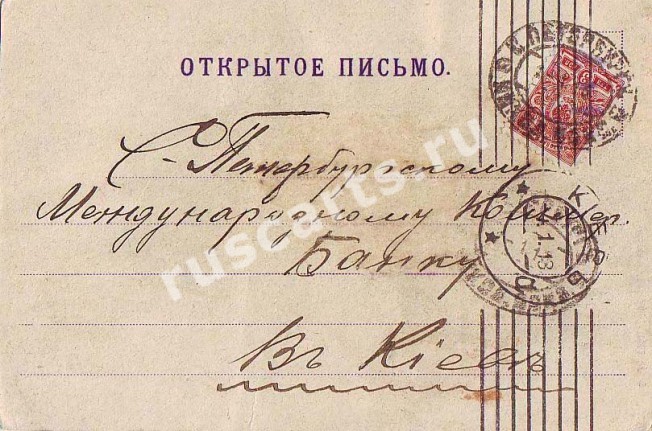 ОТКРЫТОЕ ПИСЬМО.
С-Петербургскому
Международному Коммер.
Банку
Въ Кіевъ
ruscarts.ru
КІЕВЪ
1.13